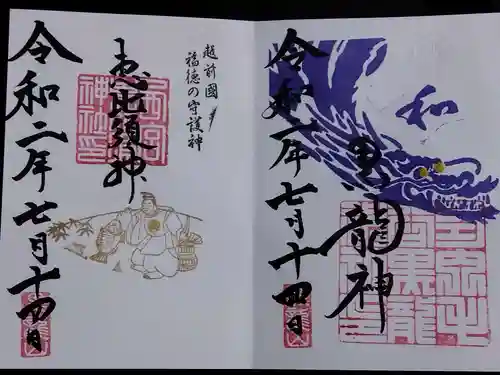 和
黒龍神
令和二年七月十四日
越前國
福徳の守護神
恵比須神
令和二年七月十四日